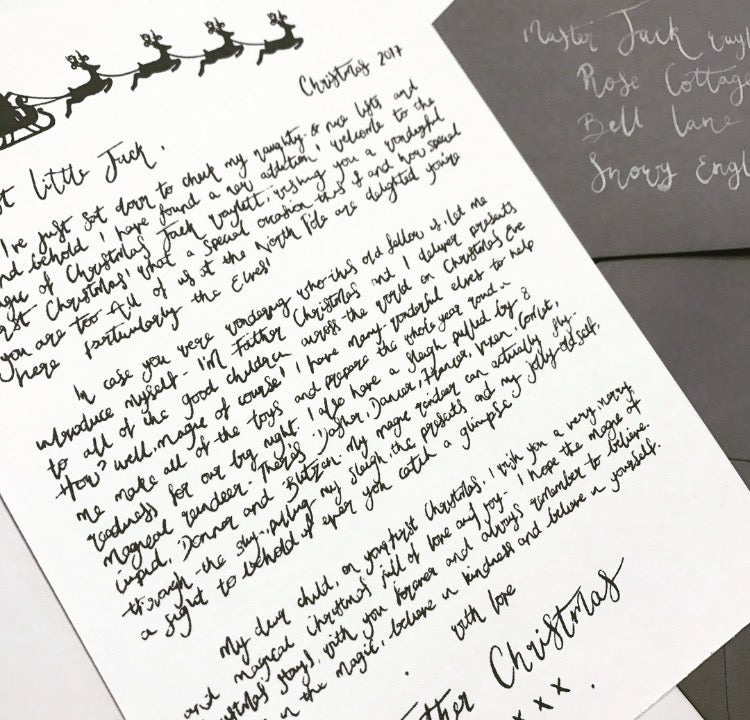 Christmas 2017
little Jack,
I've just sat down to check my naughty & nice lists and
behold I have found a new addition! welcome to the
magic of Christmas Jack Vaylett, wishing you a wonderful
first Christmas! what a special occasion this is and how special
you are too. All of us at the North Pole are delighted you're
here particularly the Elves!
In case you were wondering who this old fellow is, let me
introduce myself - I'm Father Christmas and I deliver presents
to all of the good children across the world on Christmas Eve
How? well, magic of course! I have many wonderful elves to help
me make all of the toys and prepare the whole year round in
readiness for our big night. I also have a sleigh pulled by 8
magical reindeer - There's Dasher, Dancer, Prancer, Vixen, Comet,
Cupid, Donner and Blitzen. My magic reindeer can actually fly
through the sky, pulling my sleigh, the presents and my jolly old self,
a sight to behold if ever you catch a glimpse
My dear child, on your first Christmas, I wish you a very merry
and magical Christmas full of love and joy. I hope the magic of
Christmas stays with you forever and always remember to believe
in the magic, believe in kindness and believe in yourself.
with love
Father Christmas
x x x
Master Jack Vayl
Rose Cottag
Bell Lane
Snowy Engl